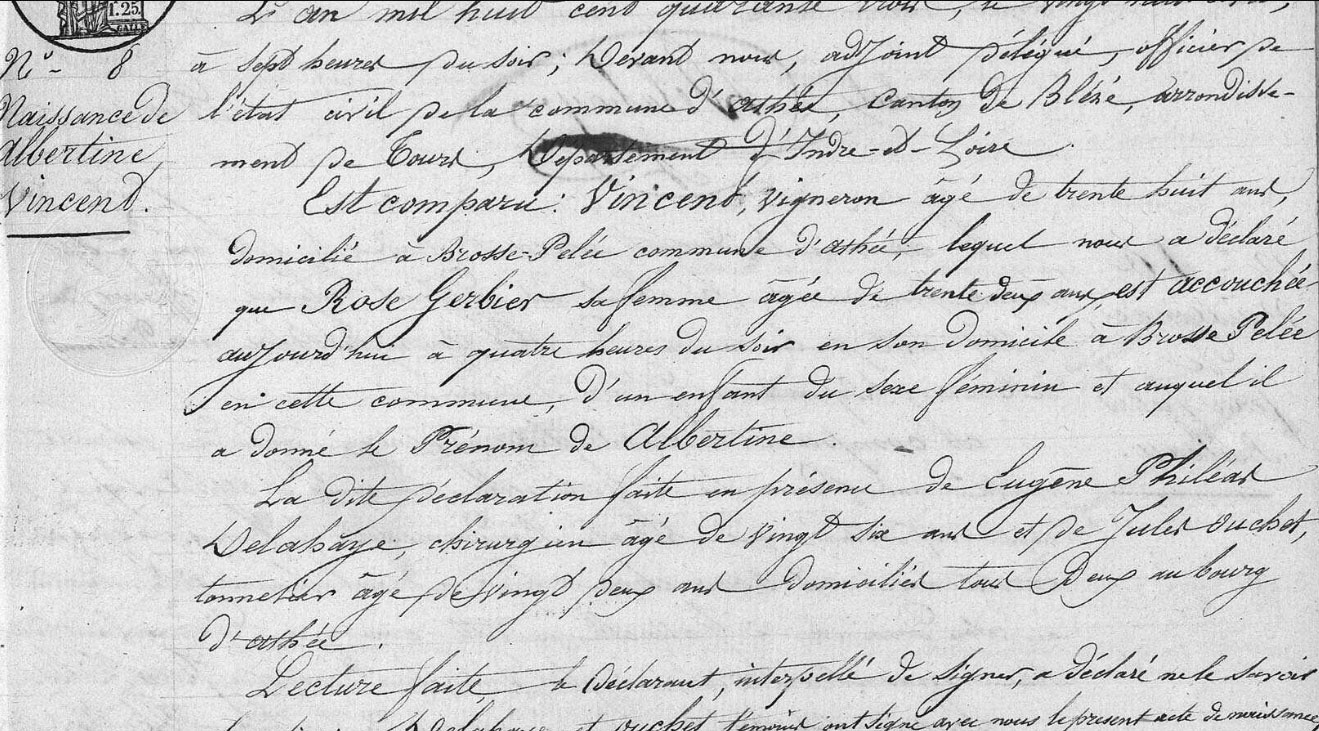 1.25.
L'an mil huit cent quarante trois, le vingt
N° 8
Naissance de
Albertine
Vincend.
à sept heures du soir; Devant nous, adjoint délégué, officier de
l'état civil de la commune d'athée, Canton de Bléré, arrondisse-
ment de Tours, Département d'Indre-et-Loire.
Est comparu: Vincend, vigneron âgé de trente huit ans,
domicilié à Brosse-Pelée commune d'athée, lequel nous a déclaré
que Rose Gerbier sa femme âgée de trente deux ans, est accouchée
aujourd'hui a quatre heures du soir en son Domicile à Brosse Pelée
en cette commune, D'un enfant du sexe féminin et auquel il
a donné le Prénom de Albertine
La dite déclaration faite en présence de Eugène Philéas
Delahaye, chirurgien âgé de vingt six ans et de Jules Ouchet,
tonnelier âgé de vingt deux ans domiciliés tous Deux au bourg
d'athée.
Lecture faite le Déclarant, interpellé de signer, a déclaré ne le savoir
Delahaye et ouchet témoins ont signé avec nous le présent acte de naissance